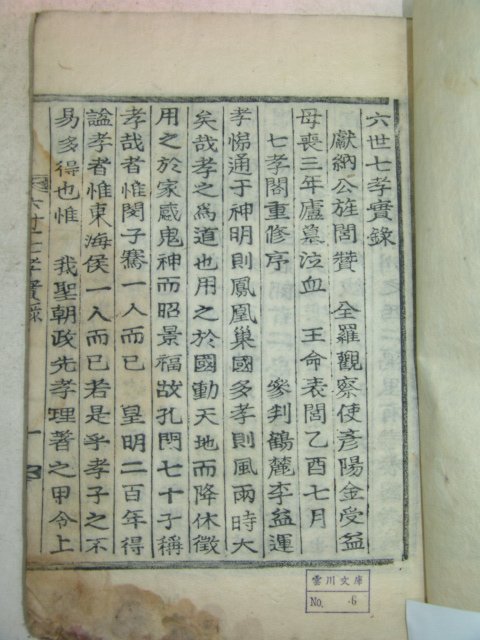 六世七孝實錄
獻納公旌閭贊 全羅觀察使彥陽金受益
母喪三年廬墓泣血 王命表閭乙酉七月也
七孝閣重修序 參判鶴麓李益運
孝悌通于神明則鳳凰巢國多孝則風雨時大
矣哉孝之爲道也用之於國動天地而降休徵
用之於家感鬼神而昭景福故孔門七十子稱
孝哉者惟閔子騫一人而已 皇明二百年得
謚孝者惟東海侯一人而已若是乎孝子之不
易多得也惟 我聖朝政先孝理著之甲令上
六世七孝實錄 一
雲川文庫
No. 6